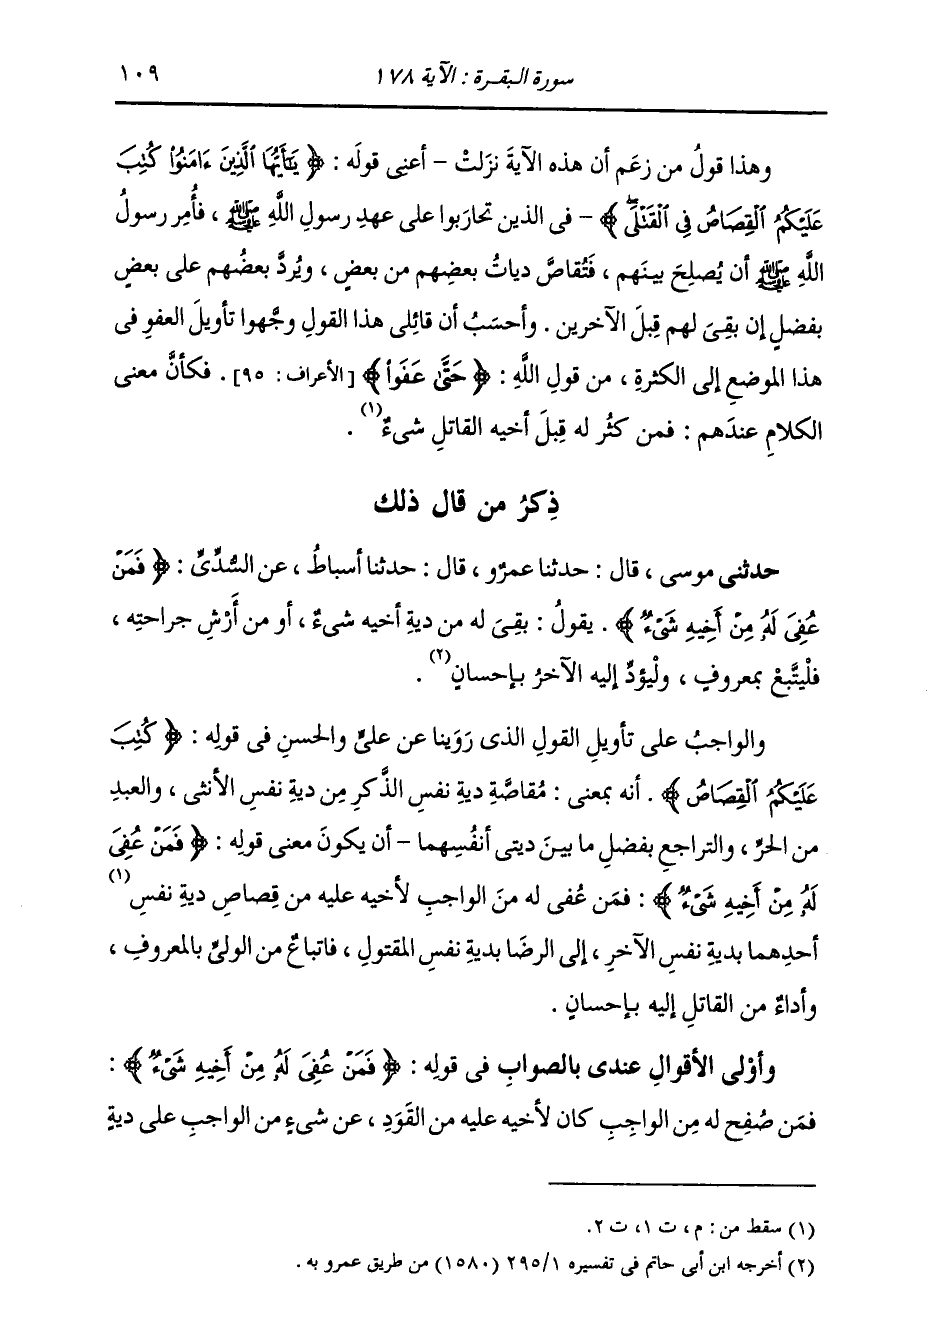 سورة البقرة : الآية ١٧٨
١٠٩
وهذا قولُ من زعَم أن هذه الآيةَ نزلتْ - أعنى قولَه : ﴿ يَٰٓأَيُّهَا ٱلَّذِينَ ءَامَنُوا۟ كُتِبَ
عَلَيْكُمُ ٱلْقِصَاصُ فِى ٱلْقَتْلَىۖ ﴾ - فى الذين تحارَبوا على عهدِ رسولِ اللَّهِ ﷺ ، فأُمِر رسولُ
اللَّهِ ﷺ أن يُصلِحَ بينَهم ، فتُقاصَّ دياتُ بعضِهم من بعضٍ ، ويُردَّ بعضُهم على بعضٍ
بفضلٍ إن بقِىَ لهم قِبلَ الآخرين . وأحسَبُ أن قائلى هذا القولِ وجَّهوا تأويلَ العفوِ فى
هذا الموضعِ إلى الكثرةِ ، من قولِ اللَّهِ : ﴿ حَتَّىٰ عَفَوا۟ ﴾ [الأعراف : ٩٥] . فكأنَّ معنى
الكلامِ عندَهم : فمن كثُر له قِبلَ أخيه القاتلِ شىءٌ(١) .
ذِكرُ من قال ذلك
حدثنى موسى ، قال : حدثنا عمرٌو ، قال : حدثنا أسباطُ ، عن السُّدِّىِّ : ﴿ فَمَنْ
عُفِىَ لَهُۥ مِنْ أَخِيهِ شَىْءٌ ﴾ . يقولُ : بقِىَ له من ديةِ أخيه شىءٌ ، أو من أَرْشِ جراحتِه ،
فلْيتَّبعْ بمعروفٍ ، ولْيؤدِّ إليه الآخرُ بإحسانٍ(٢) .
والواجبُ على تأويلِ القولِ الذى رَوَينا عن علىٍّ والحسنِ فى قولِه : ﴿ كُتِبَ
عَلَيْكُمُ ٱلْقِصَاصُ ﴾ . أنه بمعنى : مُقاصَّةِ ديةِ نفسِ الذَّكرِ مِن ديةِ نفسِ الأنثى ، والعبدِ
من الحرِّ ، والتراجعِ بفضلِ ما بينَ ديتى أنفُسِهما - أن يكونَ معنى قولِه : ﴿ فَمَنْ عُفِىَ
لَهُۥ مِنْ أَخِيهِ شَىْءٌ ﴾ : فمَن عُفى له منَ الواجبِ لأخيه عليه من قِصاصِ ديةِ نفسِ(١)
أحدِهما بديةِ نفسِ الآخرِ ، إلى الرضَا بديةِ نفسِ المقتولِ ، فاتباعٌ من الولىِّ بالمعروفِ ،
وأداءٌ من القاتلِ إليه بإحسانٍ .
وأوْلى الأقوالِ عندى بالصوابِ فى قولِه : ﴿ فَمَنْ عُفِىَ لَهُۥ مِنْ أَخِيهِ شَىْءٌ ﴾ :
فمَن صُفِح له مِن الواجِبِ كان لأخيه عليه من القَوَدِ ، عن شىءٍ من الواجبِ على ديةٍ
(١) سقط من : م ، ت ١، ت ٢.
(٢) أخرجه ابن أبى حاتم فى تفسيره ١/ ٢٩٥ (١٥٨٠) من طريق عمرو به .